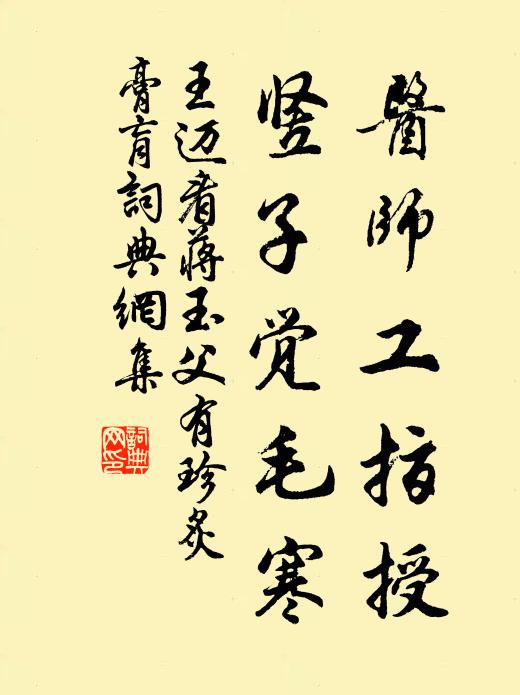 醫師工指授
竖子觉毛寒
王迈看蔣玉父有珍炙
膏肓詞典網集
詞典網印